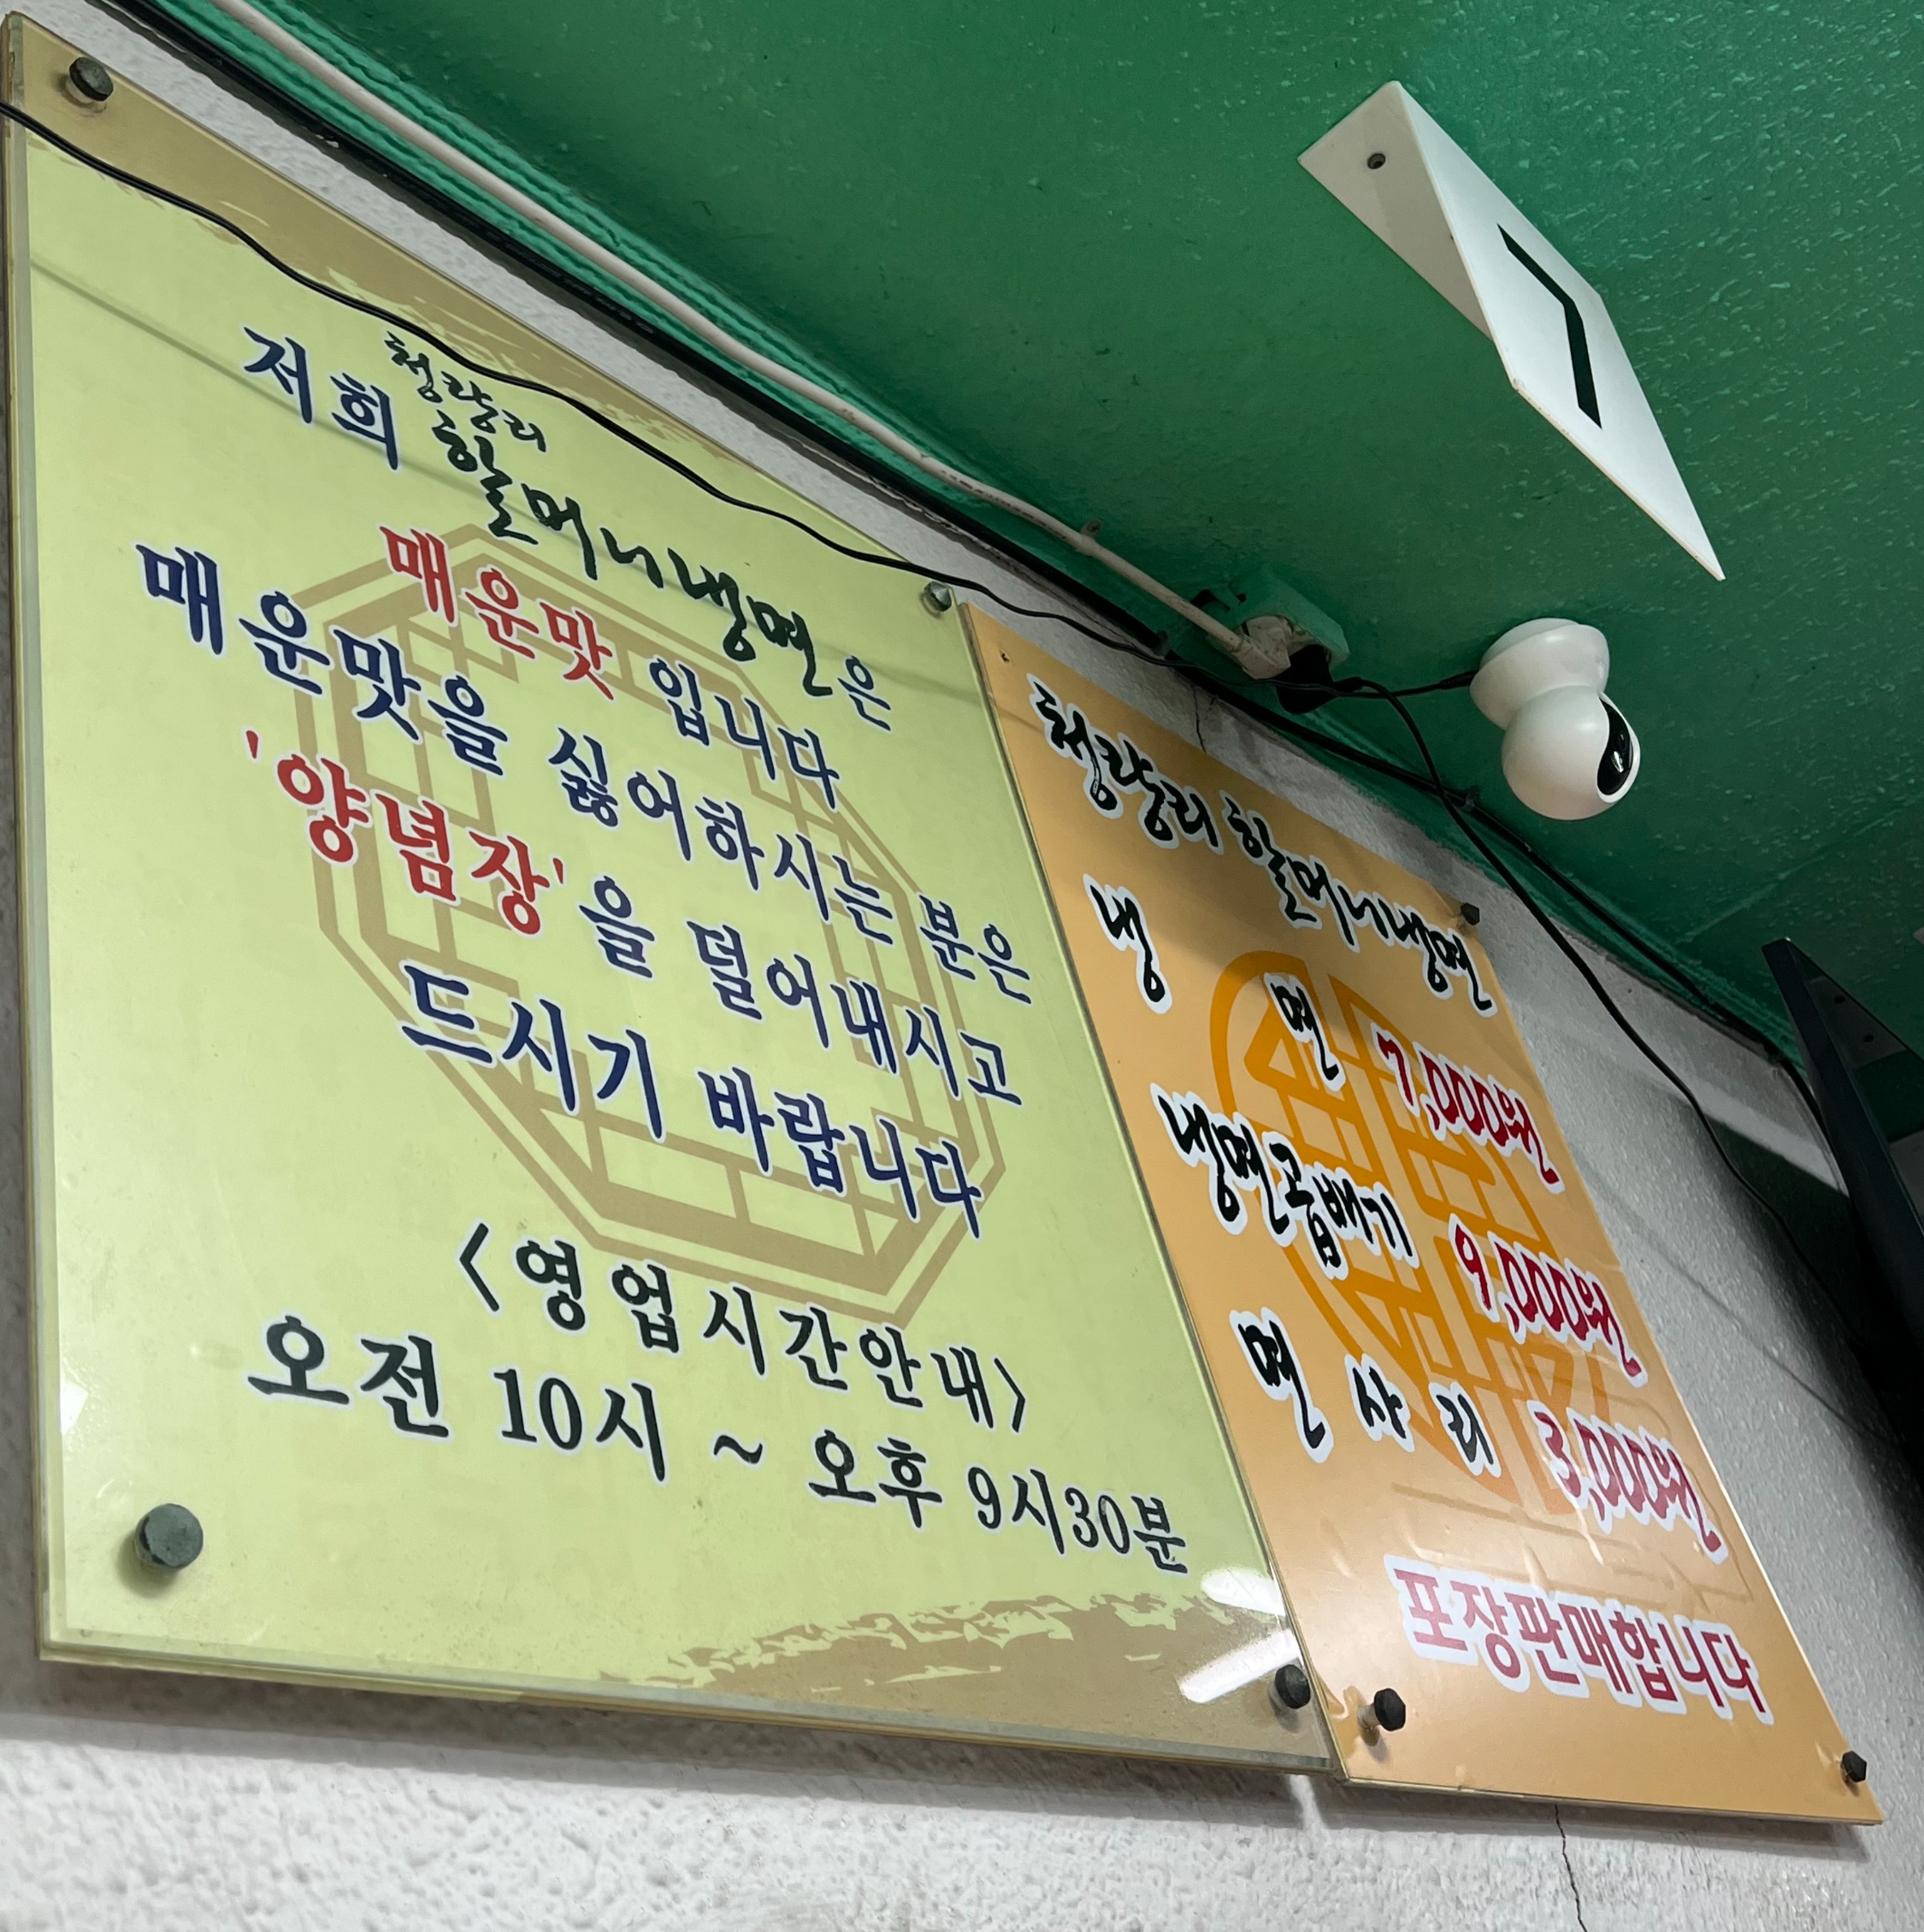 저희 청량리 할머니냉면은
매운맛 입니다
매운맛을 싫어하시는 분은
'양념장'을 덜어내시고
드시기 바랍니다
<영업시간안내>
오전 10시 ~ 오후 9시30분
청량리 할머니냉면
냉면 7,000원
냉면곱배기 9,000원
면사리 3,000원
포장판매합니다